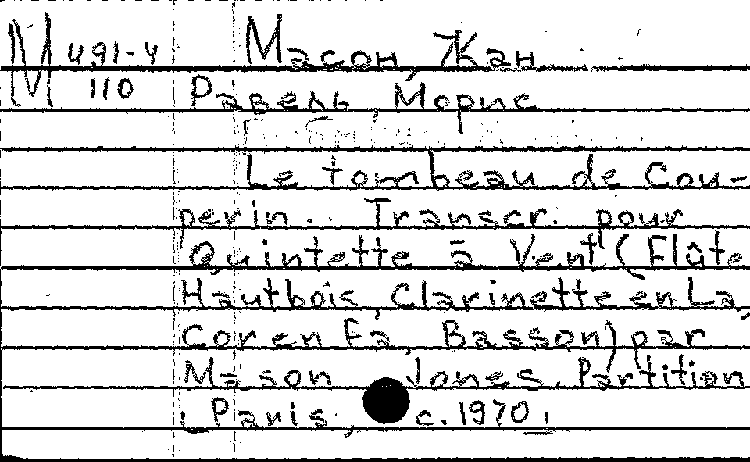 М 491-4 Масон, Жан
110 Равель Морис
Le tombeau de Cou-
perin. Transcr. pour
Quintette à Vent (Flûte
Hautbois, Clarinette en La,
Cor en Fa, Basson) par
Mason Jones. Partition
Paris, c. 1970